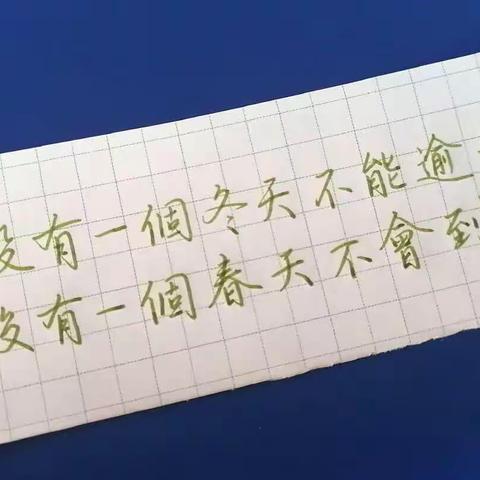 没有一個冬天不能逾
没有一個春天不會到